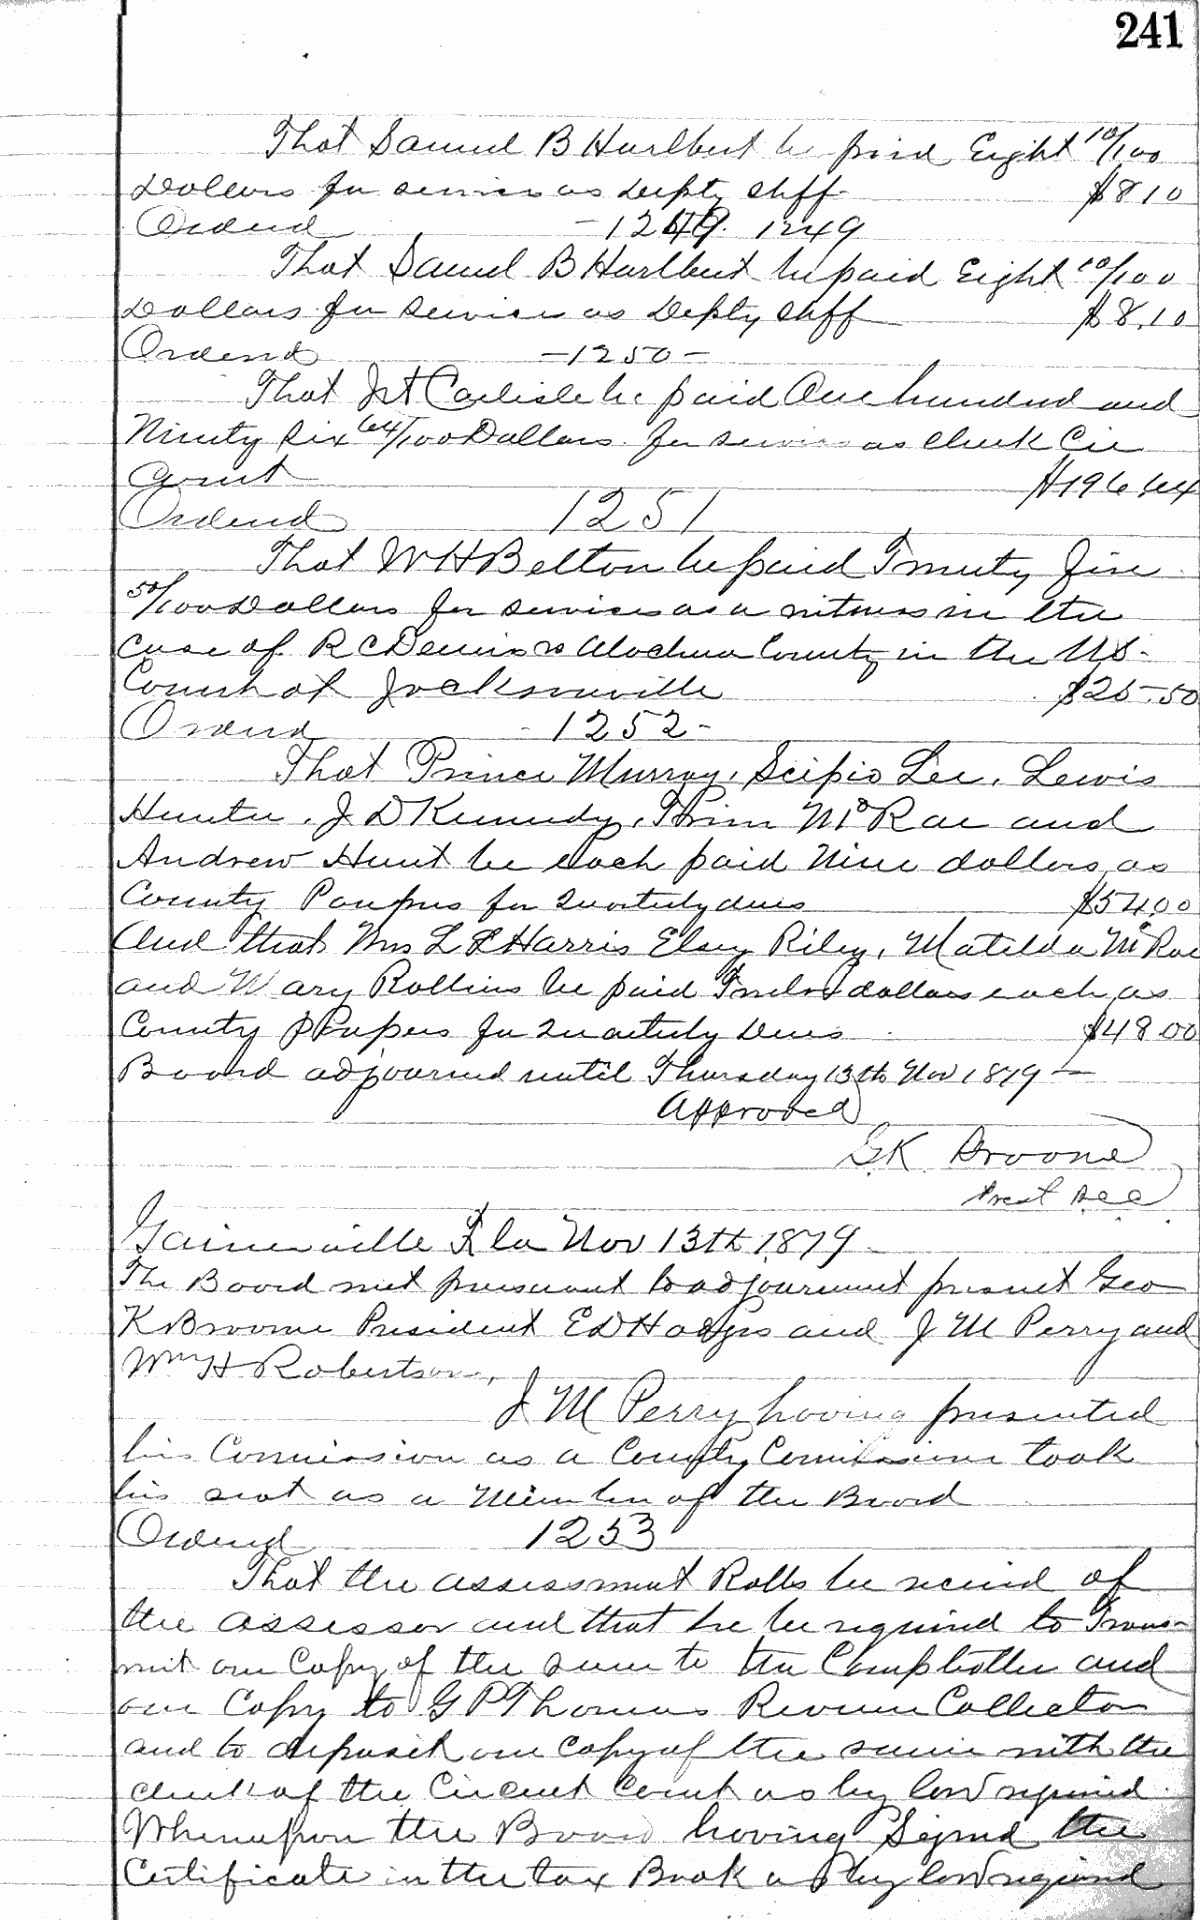 241
That Samuel B Hurlbert be paid Eight 10/100
Dollars for services as Depty Shff $8.10
Ordered - 1249. 1249
That Samuel B Hurlbert be paid Eight 10/100
Dollars for services as Depty Shff $8.10
Ordered - 1250 -
That Carlisle be paid One hundred and
Ninety Six 64/100 Dollars for services as Clerk Cir
Court $196.64
Ordered 1251
That W H Belton be paid Twenty five
50/100 Dollars for services as a witness in the
case of R C Dennis vs Alachua County in the U.S.
Court at Jacksonville $25.50
Ordered - 1252 -
That Prince Murray, Scipio Lee, Lewis
Hunter, J D Kennedy, Prim McRae and
Andrew Hunt be each paid Nine dollars as
County Paupers for Quarterly dues $54.00
And that Mrs L Harris Elsey Riley, Matilda McRae
and Mary Rollins be paid Twelve dollars each as
County Paupers for Quarterly Dues $48.00
Board adjourned until Thursday 13th Nov 1879 -
Approved
G.K. Broome
Prest BCC
Gainesville Fla Nov 13th 1879
The Board met pursuant to adjournment present Geo
K Broome President E D Hodges and J M Perry and
Wm H Robertson,
J M Perry having presented
his Commission as a County Commissioner took
his seat as a Member of the Board
Ordered 1253
That the assessment Rolls be received of
the assessor and that he be required to Trans-
mit one Copy of the same to the Comptroller and
one Copy to G P Thomas Revenue Collector
and to deposit one Copy of the same with the
clerk of the Circuit Court as by law required
Whereupon the Board having Signed the
Certificate in the tax Book as by law required